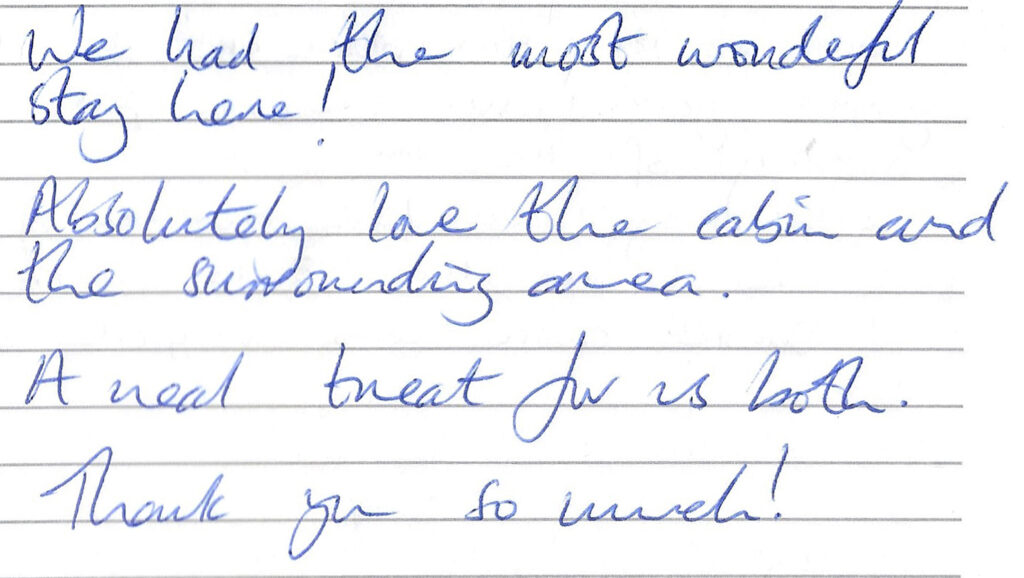 We had the most wonderful
stay here!
Absolutely love the cabin and
the surrounding area.
A real treat for us both.
Thank you so much!